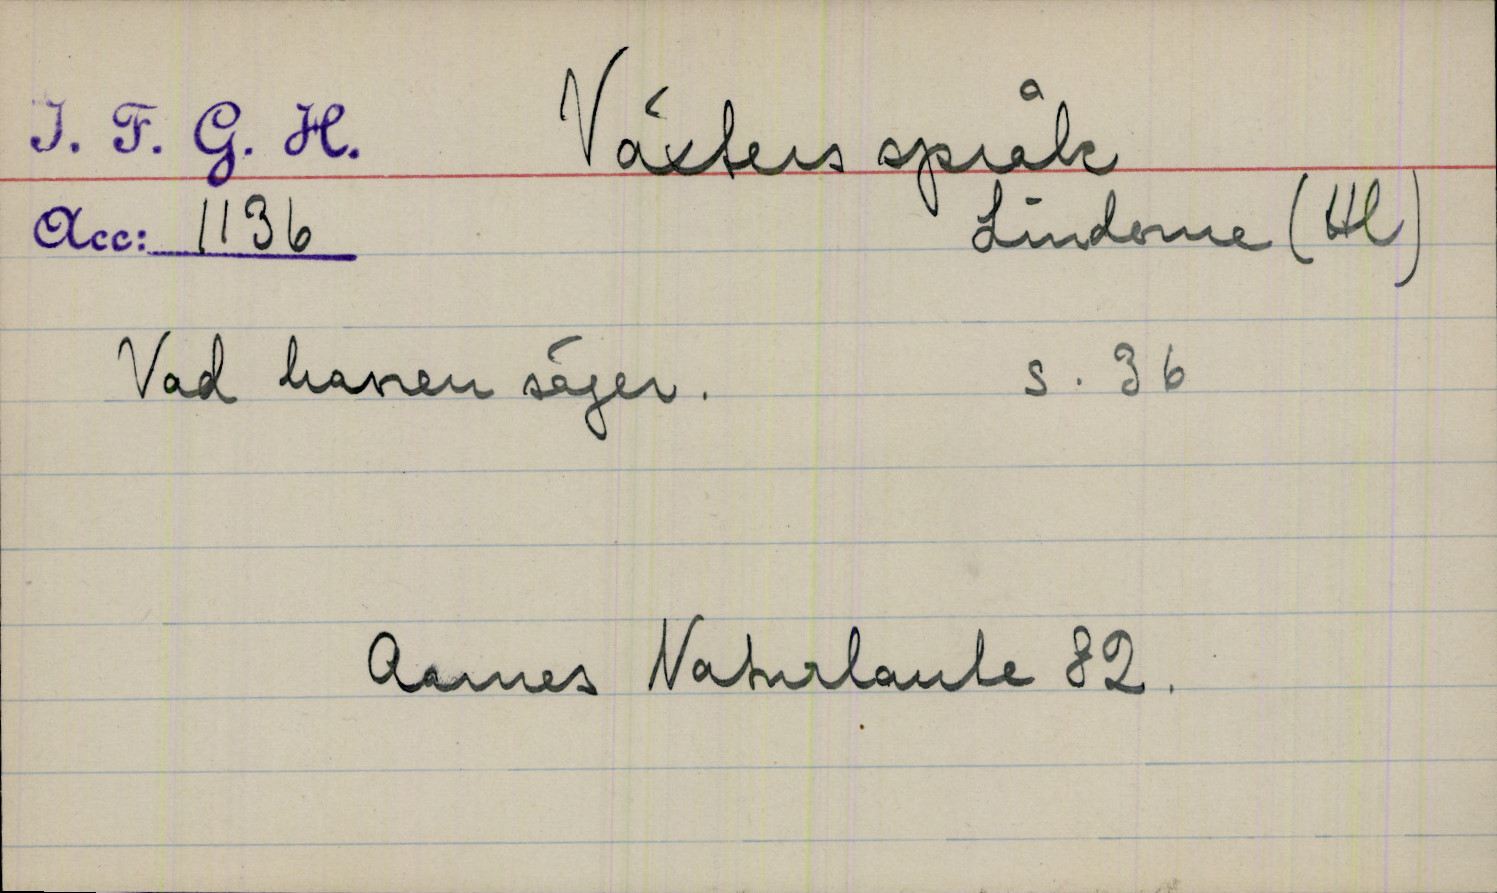 I. F. G. H.
Växters språk
Acc: 1136
Lindome (Hl)
Vad haven säger. s. 36
Aarnes Naturlaute 82.